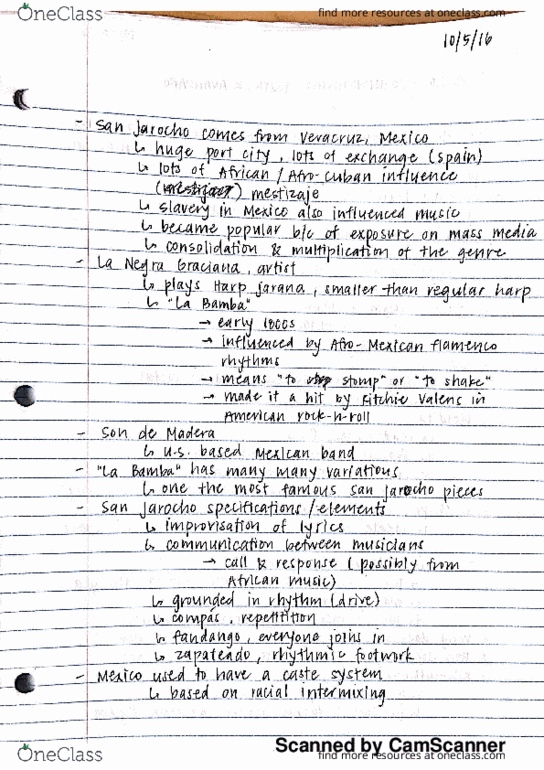 OneClass
find more resources at oneclass.com
10/5/16
- San Jarocho comes from Veracruz, Mexico
↳ huge port city, lots of exchange (spain)
↳ lots of African / Afro-Cuban influence
() mestizaje
↳ slavery in Mexico also influenced music
↳ became popular b/c of exposure on mass media
↳ consolidation & multiplication of the genre
- La Negra Graciana, artist
↳ plays Harp jarana, smaller than regular harp
↳ "La Bamba"
→ early 1800s
→ influenced by Afro-Mexican flamenco
rhythms
→ means "to stomp" or "to shake"
→ made it a hit by Ritchie Valens in
American rock-n-roll
- Son de Madera
↳ U.S. based Mexican band
- "La Bamba" has many many variations
↳ one the most famous san jarocho pieces
- San Jarocho specifications/elements
↳ improvisation of lyrics
↳ communication between musicians
→ call & response (possibly from
African music)
↳ grounded in rhythm (drive)
↳ compás, repetition
↳ fandango, everyone joins in
↳ zapateado, rhythmic footwork
- Mexico used to have a caste system
↳ based on racial intermixing
Scanned by CamScanner
OneClass
find more resources at oneclass.com